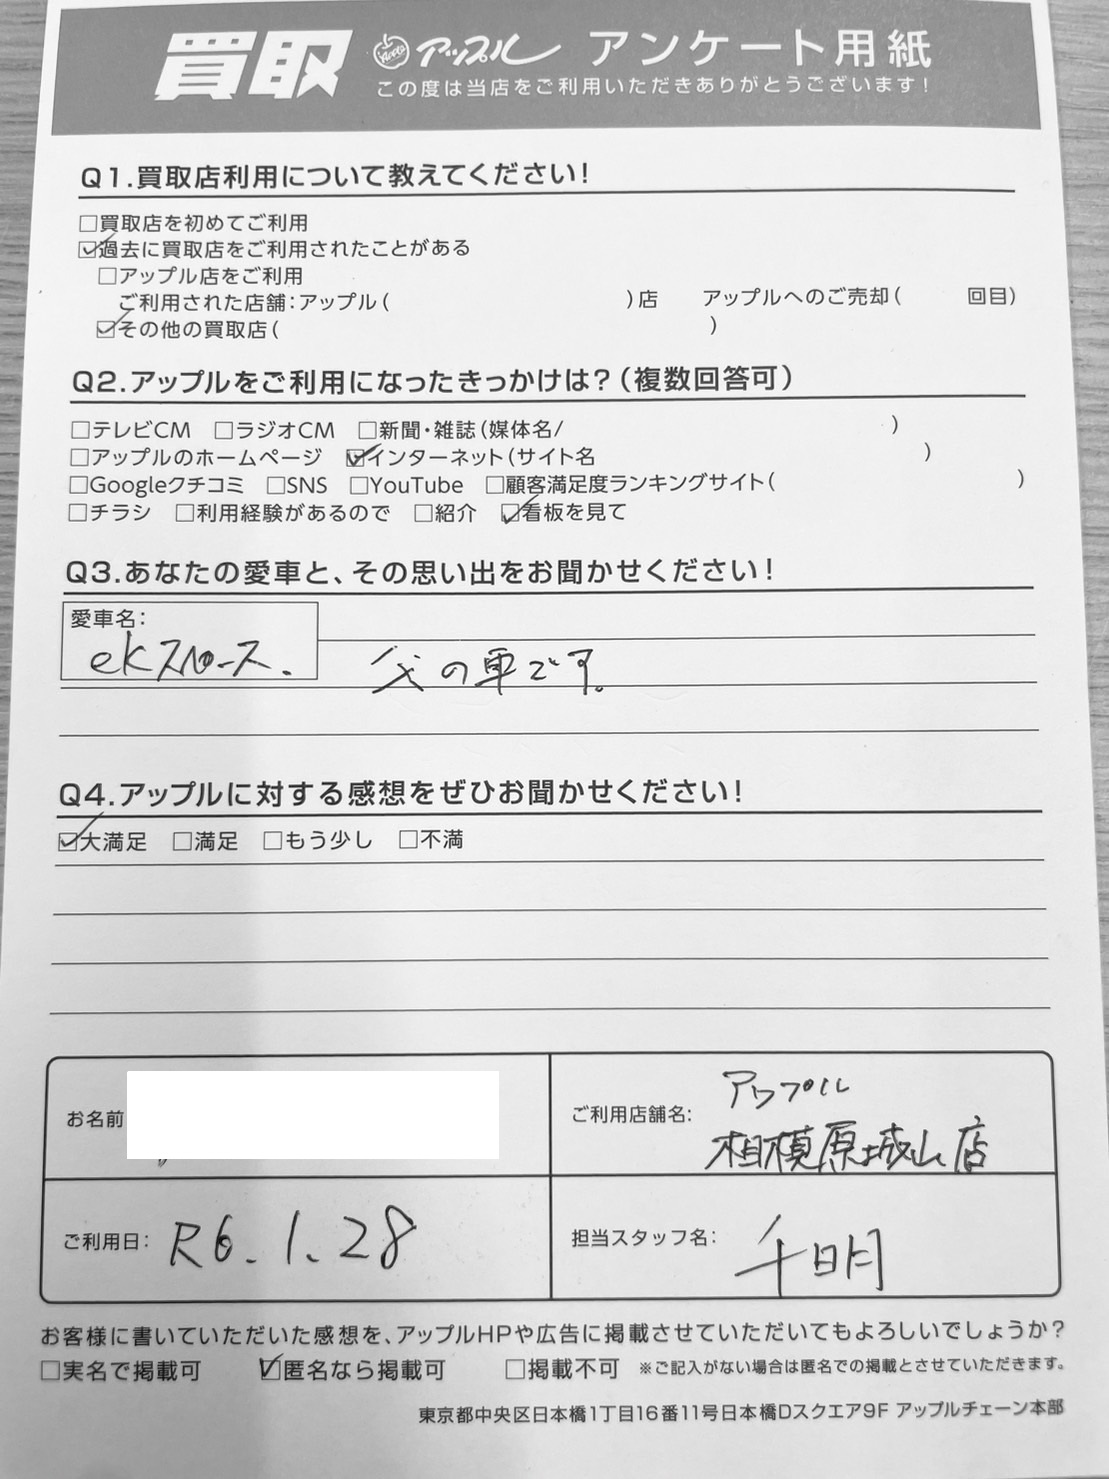 買取 アップル アンケート用紙
この度は当店をご利用いただきありがとうございます!
Q1.買取店利用について教えてください!
□買取店を初めてご利用
☑過去に買取店をご利用されたことがある
□アップル店をご利用
ご利用された店舗:アップル( )店 アップルへのご売却( 回目)
☑その他の買取店( )
Q2.アップルをご利用になったきっかけは?(複数回答可)
□テレビCM □ラジオCM □新聞・雑誌(媒体名/ )
□アップルのホームページ ☑インターネット(サイト名 )
□Googleクチコミ □SNS □YouTube □顧客満足度ランキングサイト( )
□チラシ □利用経験があるので □紹介 ☑看板を見て
Q3.あなたの愛車と、その思い出をお聞かせください!
愛車名:
ekスペース. 父の車です。
Q4.アップルに対する感想をぜひお聞かせください!
☑大満足 □満足 □もう少し □不満
お名前
ご利用店舗名: アップル
相模原城山店
ご利用日: R6.1.28
担当スタッフ名: 千明
お客様に書いていただいた感想を、アップルHPや広告に掲載させていただいてもよろしいでしょうか?
□実名で掲載可 ☑匿名なら掲載可 □掲載不可 ※ご記入がない場合は匿名での掲載とさせていただきます。
東京都中央区日本橋1丁目16番11号日本橋Dスクエア9F アップルチェーン本部